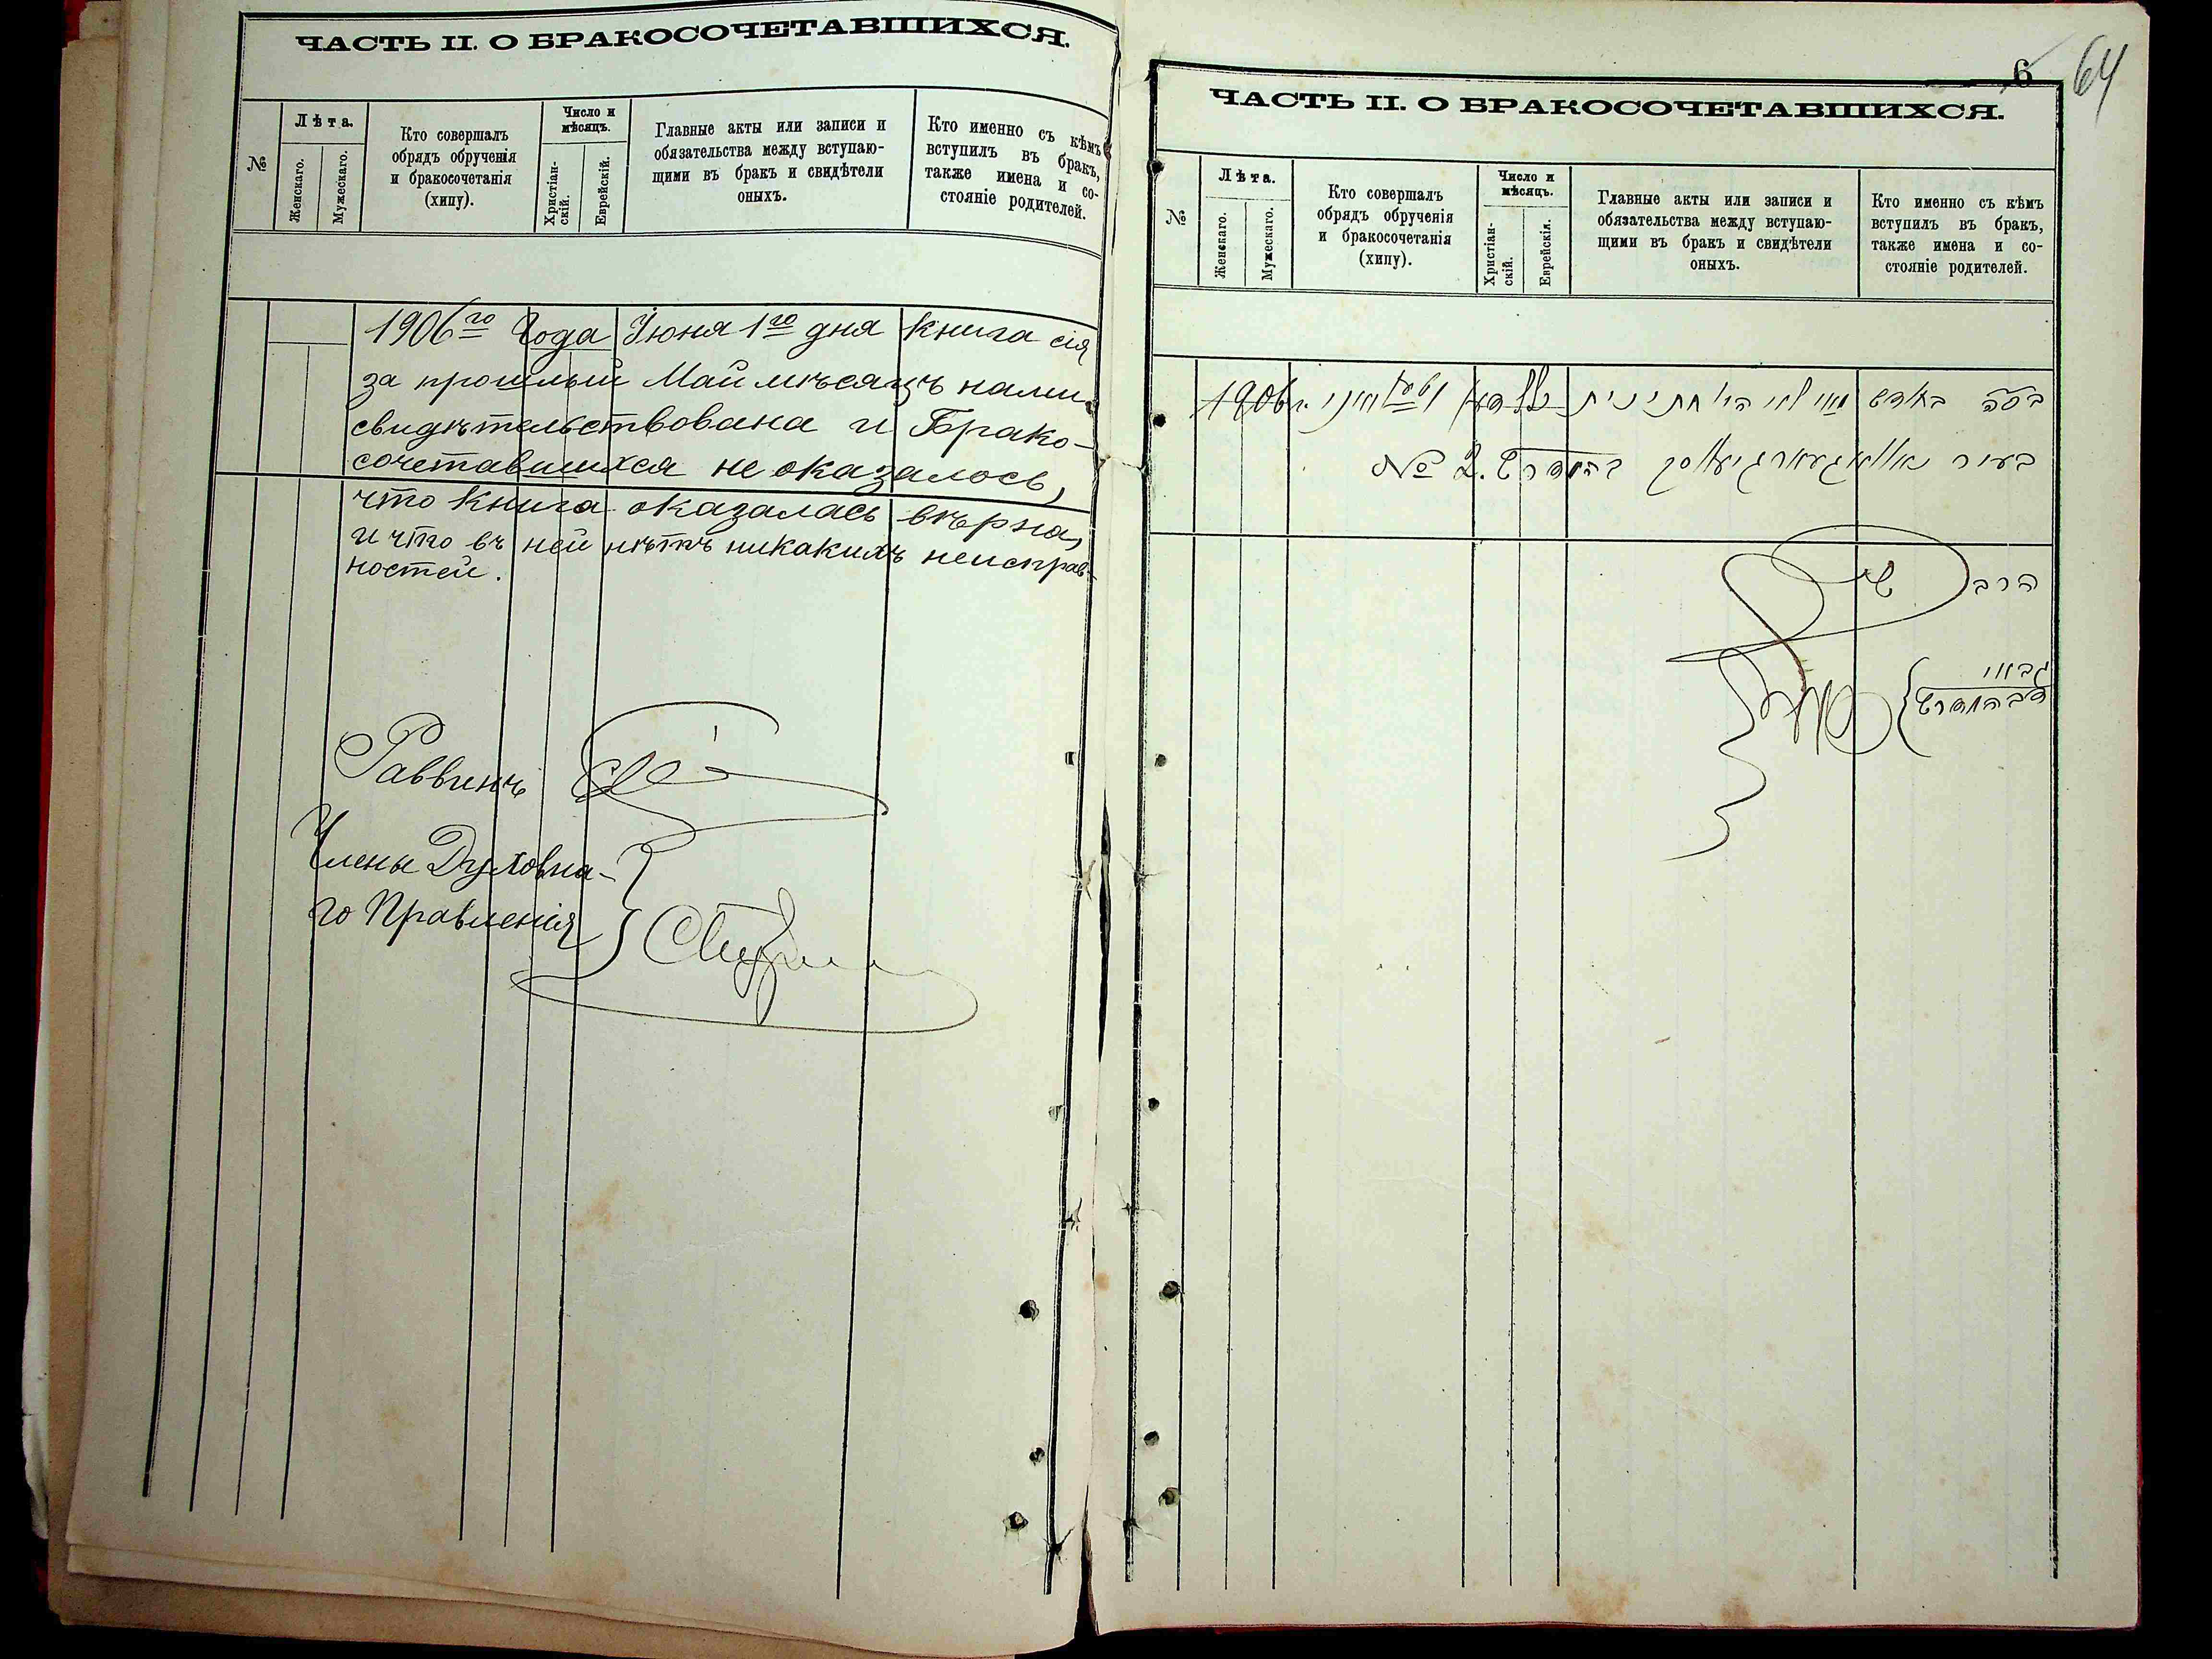 ЧАСТЬ II. О БРАКОСОЧЕТАВШИХСЯ.
№
Лѣта.
Женскаго.
Мужескаго.
Кто совершалъ
обрядъ обрученія
и бракосочетанія
(хипу).
Число и
мѣсяцъ.
Христіан-
скій.
Еврейскій.
Главные акты или записи и
обязательства между вступаю-
щими въ бракъ и свидѣтели
оныхъ.
Кто именно съ кѣмъ
вступилъ въ бракъ,
также имена и со-
стояніе родителей.
1906го Года Іюня 1го дня книга сія
за прошлый Май мѣсяцъ нами
свидѣтельствована и Брако-
сочетавшихся не оказалось,
что книга оказалась вѣрна,
и что въ ней нѣтъ никакихъ неисправ-
ностей.
Раввинъ
Члены Духовна-
го Правленія
6
64
ЧАСТЬ II. О БРАКОСОЧЕТАВШИХСЯ.
№
Лѣта.
Женскаго.
Мужескаго.
Кто совершалъ
обрядъ обрученія
и бракосочетанія
(хипу).
Число и
мѣсяцъ.
Христіан-
скій.
Еврейскія.
Главные акты или записи и
обязательства между вступаю-
щими въ бракъ и свидѣтели
оныхъ.
Кто именно съ кѣмъ
вступилъ въ бракъ,
также имена и со-
стояніе родителей.
בחדש מאי לא היו 1906
בעיר בהמדרש № 2.
הרב
גבאי
דבהמדרש